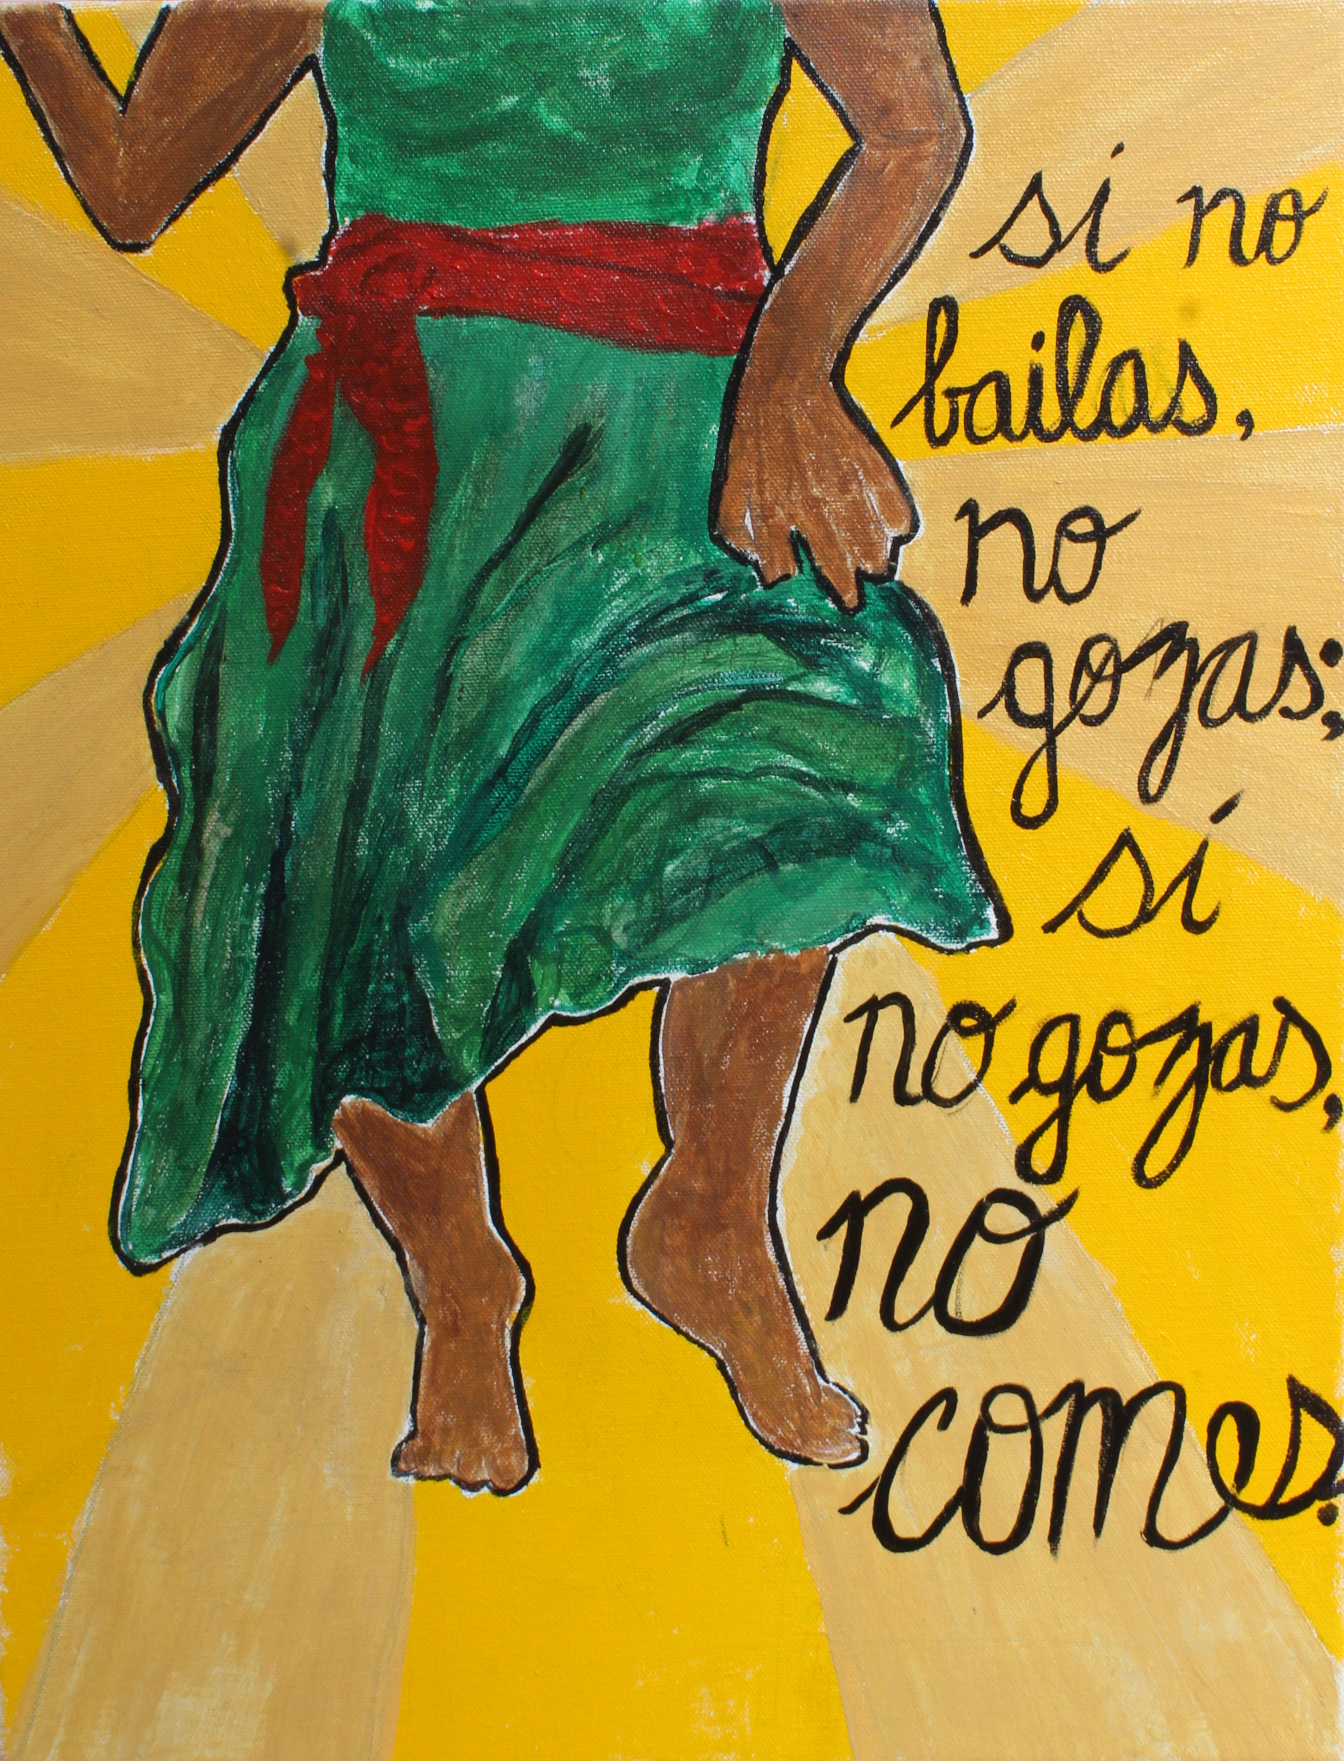 si no
bailas,
no
gozas;
si
no gozas,
no
comes.